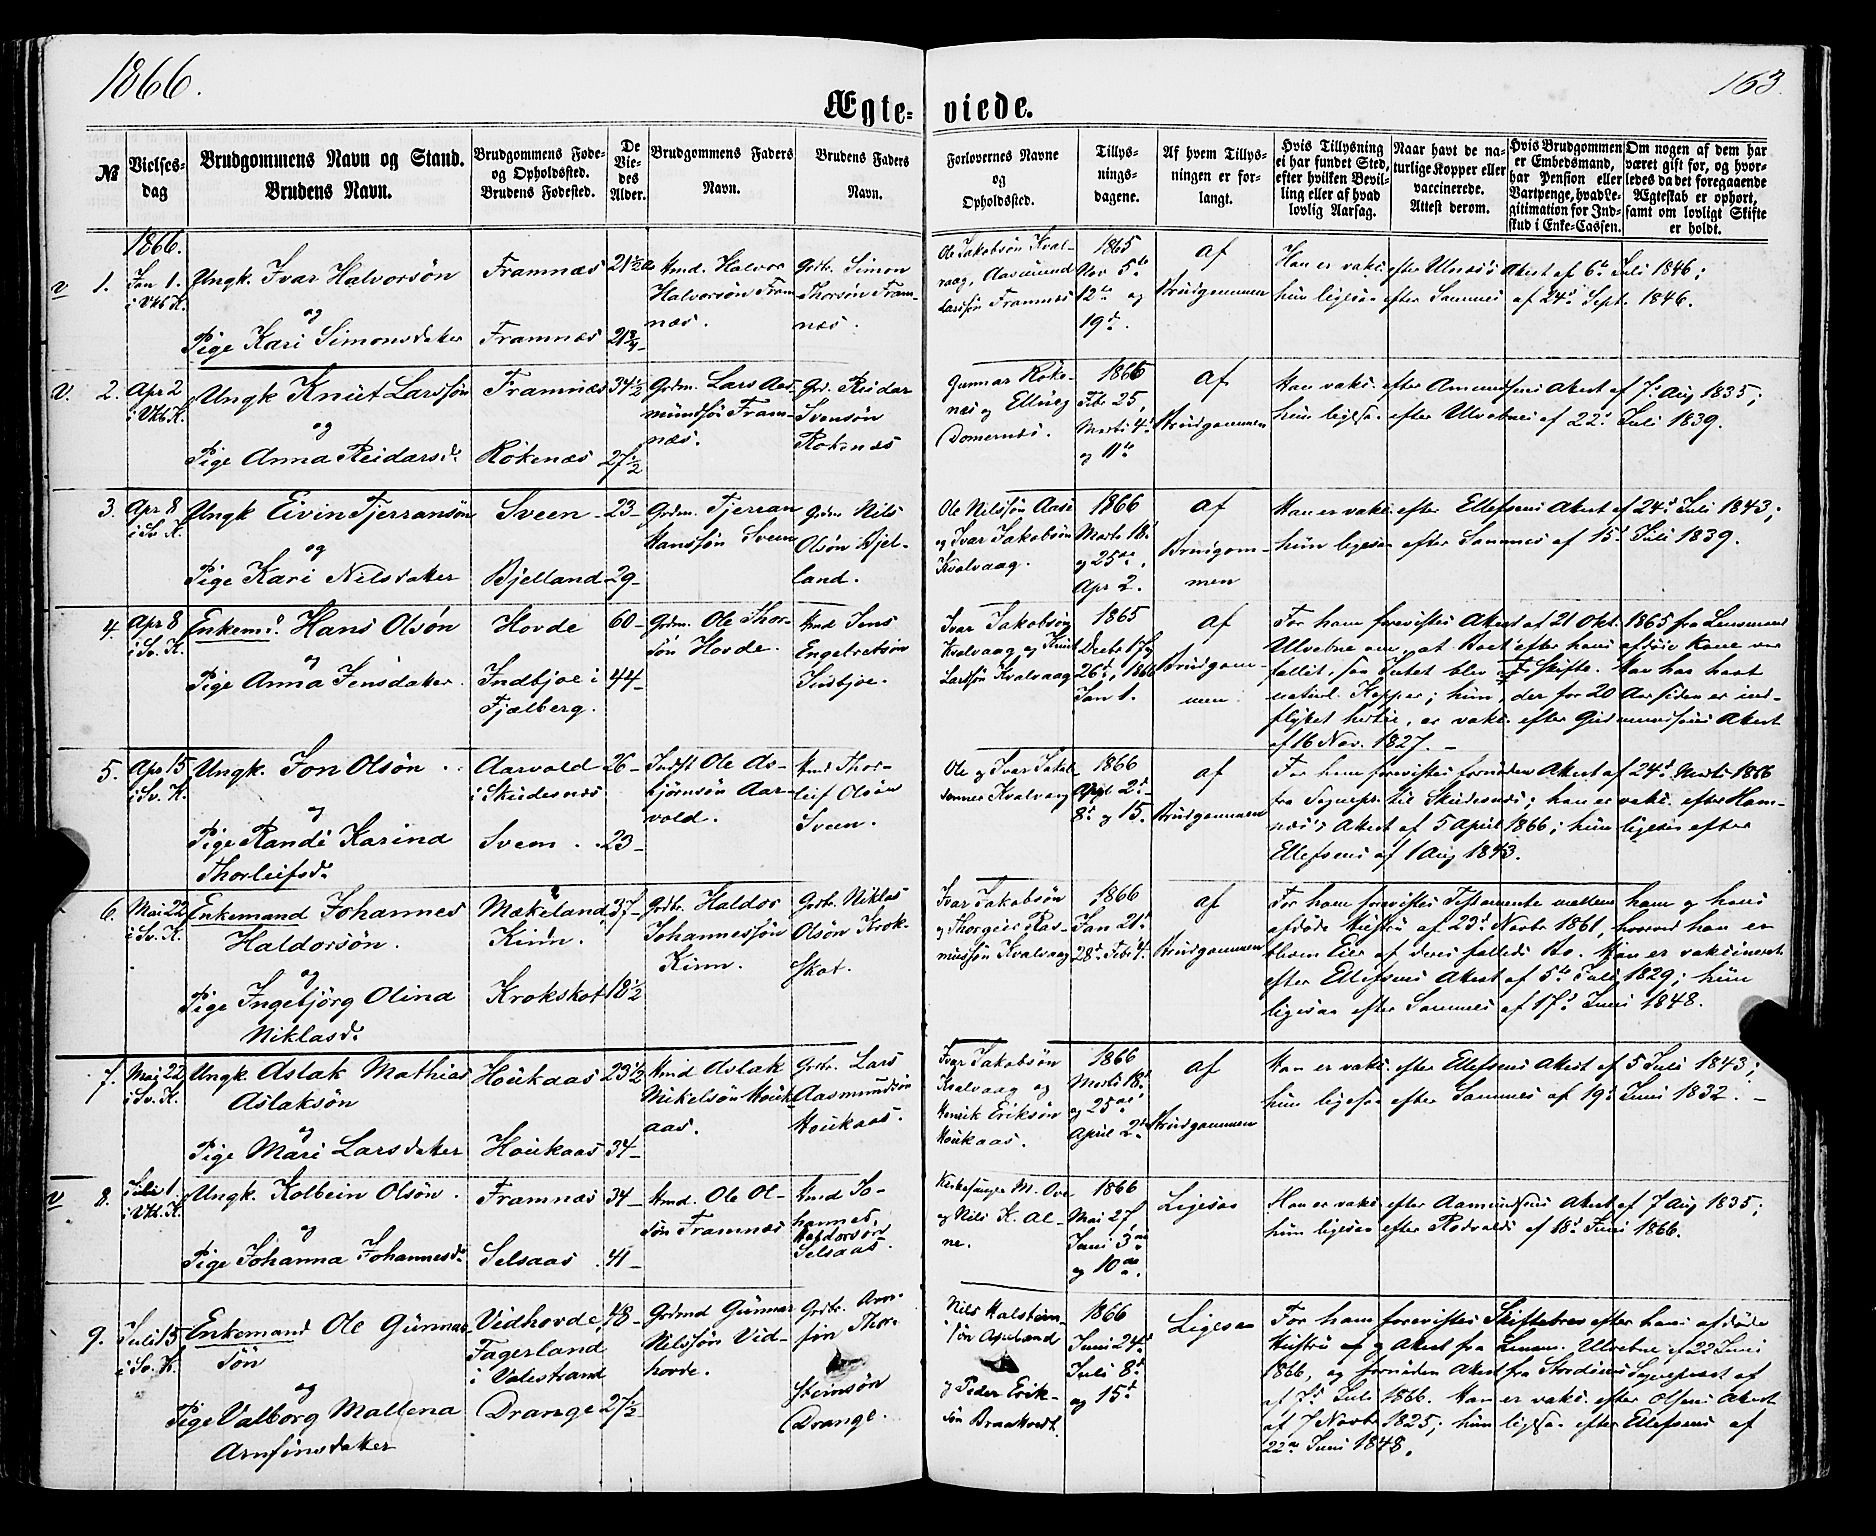 1866.
163.
Ægte-viede.
№
Vielses-
dag
Brudgommens Navn og Stand.
Brudens Navn.
Brudgommens Føde-
og Opholdssted.
Brudens Fødested.
De
Vie-
des
Alder.
Brudgommens Faders
Navn.
Brudens Faders
Navn.
Forlovernes Navne
og
Opholdssted.
Tillys-
nings-
dagene.
Af hvem Tillys-
ningen er for-
langt.
Hvis Tillysning
ei har fundet Sted,
efter hvilken Bevil-
ling eller af hvad
lovlig Aarsag.
Naar havt de na-
turlige Kopper eller
vaccinerede.
Attest derom.
Hvis Brudgommen
er Embedsmand,
har Pension eller
Vartpenge, hvad Le-
gitimation for Ind-
skud i Enke-Cassen.
Om nogen af dem har
været gift før, og hvor-
ledes da det foregaaende
Ægteskab er ophørt,
samt om lovligt Skifte
er holdt.
1866.
v 1.
Jan 1.
i Vkb K.
Ungk. Ivar Halvorsön
og
Pige Kari Simonsdater
Framnæs
Framnæs
21½
21¾
Hmd. Halvor
Halvorsön Fram
næs.
Grbr. Simon
Thorsön Fram-
næs.
Ole Jakobsön Kval-
vaag, Aasmund
Larssön Framnæs
1865
Nov 5te
12te og
19d.
af
Brudgommen
Han er vaks. efter Ulvesös Atest af 6te Juli 1846;
hun ligesaa efter Sammes af 24d Sept. 1846.
v. 2.
Apr 2
i Vkb K.
Ungk Knut Larssön
og
Pige Anna Reidarsd.
Framnæs
Rökenæs
34½
27½
Grdm. Lars Aas-
mundsön Fram-
næs.
Grd. Reidar
Svensön
Rökenæs
Gunnar Röke-
næs og Elling
Domernæs.
1866
Febr 25,
Marts 4de
og 11te
af
Brudgommen
Han vaks. efter Amundsens Atest af 7d Aug 1835;
hun ligesaa efter Ulvebnes af 22d Juli 1839.
3.
Apr 8
i Sv. K.
Ungk Eivin Tjerransön
og
Pige Kari Nilsdater
Sveen
Bjelland
23
29
Grdm. Tjerran
Hanssön Sveen
Grdm Nils
Olsön Bjel-
land.
Ole Nilssön Aase
og Ivar Jakobsön
Kvalvaag.
1866
Marts 18d
og 25de,
Apr 2.
af
Brudgom-
men
Han er vaks. efter Ellefsens Atest af 24d Juli 1843;
hun ligesaa efter Sammes af 15d Juli 1839.
4.
Apr 8
i Sv. K.
Enkemd. Hans Olsön
og
Pige Anna Jensdater
Hovde
Indbjoe i
Fjælberg.
60
44
Grdm. Ole Thor-
sön Hovde.
Hmd Jens
Engelretsön
Indbjoe.
Ivar Jakobsön
Kvalvaag og Knut
Larssön Kvalvaag
1865
Decbr 17 og
26d, 1866
Jan 1.
af
Brudgom-
men
For ham forevistes Atest af 21 Okt. 1865 fra Lensmand
Ulvebne om, at Boet efter hans afdöde Kone var
fallit, saa Intet blev at skifte. Han har havt
naturl. Kopper; hun, der for 20 Aar siden er ind-
flyttet hertil, er vaks. efter Gudmundsens Atest
af 16 Nov. 1827.
5.
Apr 15
i Sv. K.
Ungk. Jon Olsön
og
Pige Randi Karina
Thorleifsd.
Aarvold
i Skudesnæs
Sveen
26
23
Indst Ole As-
björnsön Aar-
vold.
Hmd Thor-
leif Olsön
Sveen.
Ole og Ivar Jakob-
sönner Kvalvaag
1866
April 2d
8d og 15.
af
Brudgommen
For ham forevistes fornöden Atest af 24d Marts 1866
fra Sognepr. til Skudesnæs; han er vaks. efter Ham-
næs's Atest af 5 April 1866; hun ligesaa efter
Ellefsens af 1 Aug 1843.
6.
Mai 22
i Sv. K.
Enkemand Johannes
Haldorsön.
og
Pige Ingebjörg Olina
Niklasd.
Mækeland,
Kinn.
Krokskot
37
18½
Grdbr. Haldor
Johannessön
Kinn.
Grbr. Niklas
Olsön Krok-
skot.
Ivar Jakobsön
og Thorgeir Ras-
mussön Kvalvaag
1866
Jan 21d
28d Febr 4.
af
Brudgommen
For ham forevistes Testamente mellem ham og hans
afdöde Hustru af 23d Novbr 1861, hvorved han er
bleven Eier af deres fælleds Bo. Han er vaksineret
efter Ellefsens Atest af 5te Juli 1829; hun
ligesaa efter Sammes af 17d Juni 1848.
7.
Mai 22
i Sv. K.
Ungk. Aslak Mathias
Aslaksön
og
Pige Mari Larsdater
Houkaas
Houkaas
23½
34
Hmd Aslak
Mikelsön Houk-
aas.
Grbr. Lars
Aasmundsön
Houkaas.
Ivar Jakobsön
Kvalvaag og
Henrik Eriksön
Houkaas.
1866
Marts 18d
og 25de
April 2d
af
Brudgommen
Han er vaks. efter Ellefsens Atest af 5 Juli 1843;
hun ligesaa efter Sammes af 19d Juni 1832.
v 8.
Juli 1.
i Vkb. K.
Ungk. Kolbein Olsön
og
Pige Johanna Johannesd.
Framnæs
Selsaas
34
41
Hmd. Ole Ol-
sön Framnæs
Hmd Jo-
hannes
Haldorsön
Selsaas.
Kirkesanger M. Ove
og Nils K. Al-
ne.
1866
Mai 27,
Juni 3de
og 10de.
Ligesaa
Han er vaks. efter Aamundsens Atest af 7 Aug 1835;
hun ligesaa efter Rodvalds af 18d Juni 1866.
9.
Juli 15
i Sv. K.
Enkemand Ole Gunnar-
sön
og
Pige Valborg Mallena
Arnfinsdater
Vidhovde,
Fagerland
i Valestrand
Drange
48
27½
Grdmd Gunnar
Nilssön Vid-
hovde.
Grdbr. Arn-
fin Thor-
steinsön
Drange.
Nils Halstein-
sön
og Peder Erik-
sön Braatvedt.
1866
Juni 24d
Juli 8d
og 15d
Ligesaa
For ham forevistes Skiftebrev efter hans afdöde
Hustru og Atest fra Lensm. Ulvebne af 22 Juni
1866, og fornöden Atest fra Stordöens Sognepræst af
af 7d Juli 1866. Han er vaks. efter Olsens Atest
af 7 Novbr 1825; hun ligesaa efter Ellefsens af
22de Juni 1848.